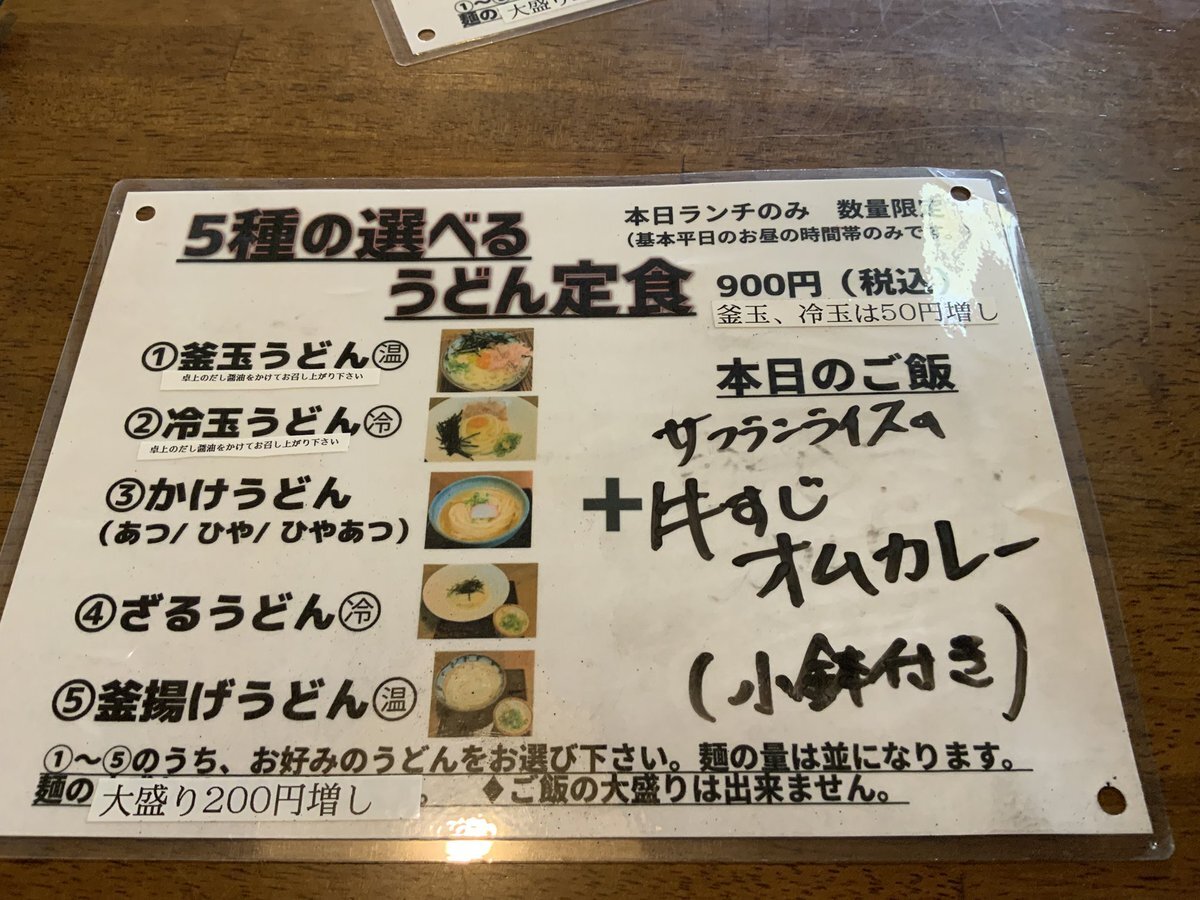 ①~
麺の 大盛り
5種の選べる
うどん定食
本日ランチのみ 数量限定
(基本平日のお昼の時間帯のみです。)
900円(税込)
釜玉、冷玉は50円増し
①釜玉うどん温
卓上のだし醤油をかけてお召し上がり下さい
②冷玉うどん冷
卓上のだし醤油をかけてお召し上がり下さい
③かけうどん
(あつ/ひや/ひやあつ)
④ざるうどん冷
⑤釜揚げうどん温
+
本日のご飯
サフランライスの
牛すじ
オムカレー
(小鉢付き)
①~⑤のうち、お好みのうどんをお選び下さい。麺の量は並になります。
麺の 大盛り200円増し 。 ◆ご飯の大盛りは出来ません。